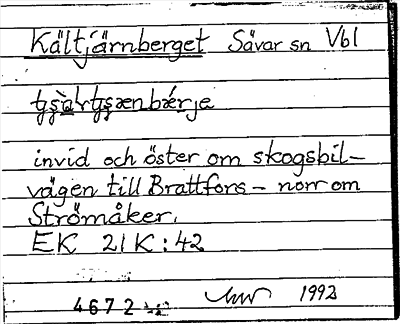 Kältjärnberget Sävar sn Vbl
invid och öster om skogsbil-
vägen till Brattfors - norr om
Strömåker.
EK 21K:42
4672
1992